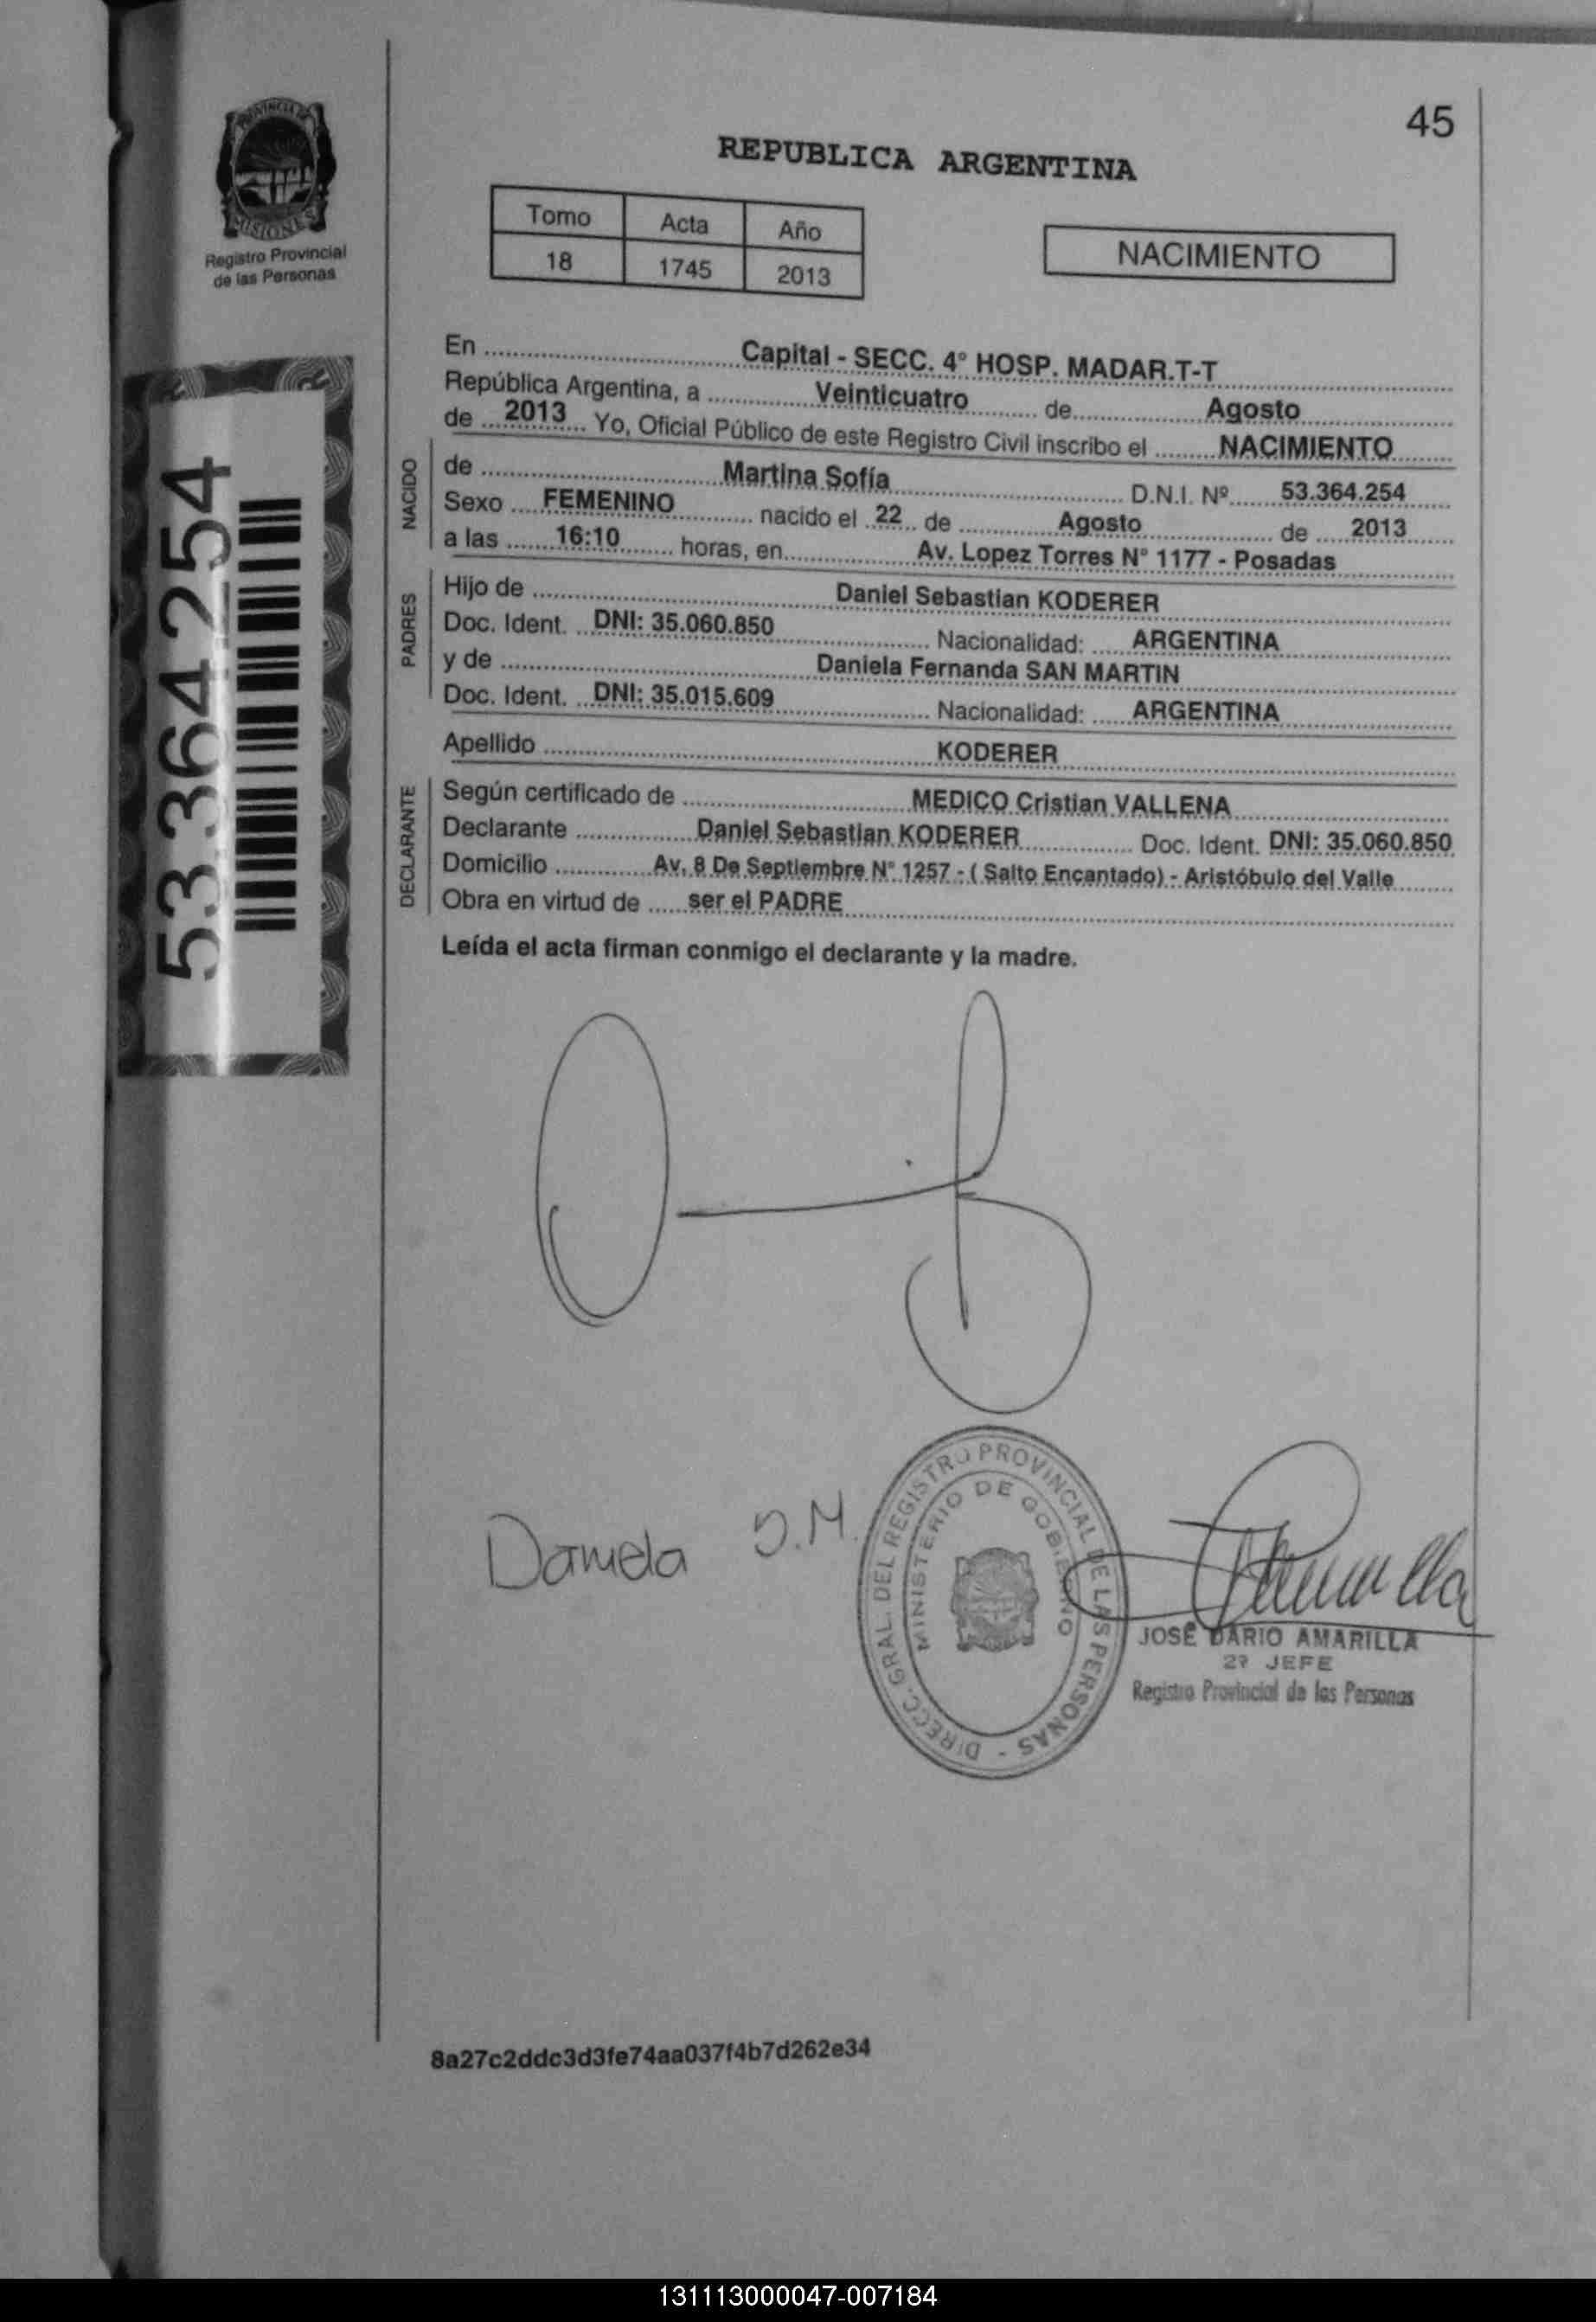 45
PROVINCIA DE
MISIONES
Registro Provincial
de las Personas
REPUBLICA ARGENTINA
Tomo Acta Año
18 1745 2013
NACIMIENTO
53.364.254
En Capital - SECC. 4º HOSP. MADAR.T-T
República Argentina, a Veinticuatro de Agosto
de 2013 Yo, Oficial Público de este Registro Civil inscribo el NACIMIENTO
NACIDO
de Martina Sofía D.N.I. Nº 53.364.254
Sexo FEMENINO nacido el 22 de Agosto de 2013
a las 16:10 horas, en Av. Lopez Torres Nº 1177 - Posadas
PADRES
Hijo de Daniel Sebastian KODERER
Doc. Ident. DNI: 35.060.850 Nacionalidad: ARGENTINA
y de Daniela Fernanda SAN MARTIN
Doc. Ident. DNI: 35.015.609 Nacionalidad: ARGENTINA
Apellido KODERER
DECLARANTE
Según certificado de MEDICO Cristian VALLENA
Declarante Daniel Sebastian KODERER Doc. Ident. DNI: 35.060.850
Domicilio Av. 8 De Septiembre Nº 1257 - ( Salto Encantado) - Aristóbulo del Valle
Obra en virtud de ser el PADRE
Leída el acta firman conmigo el declarante y la madre.
Daniela S.M.
DIRECC. GRAL. DEL REGISTRO PROVINCIAL DE LAS PERSONAS -
MINISTERIO DE GOBIERNO
JOSE DARIO AMARILLA
2º JEFE
Registro Provincial de las Personas
8a27c2ddc3d3fe74aa037f4b7d262e34
131113000047-007184